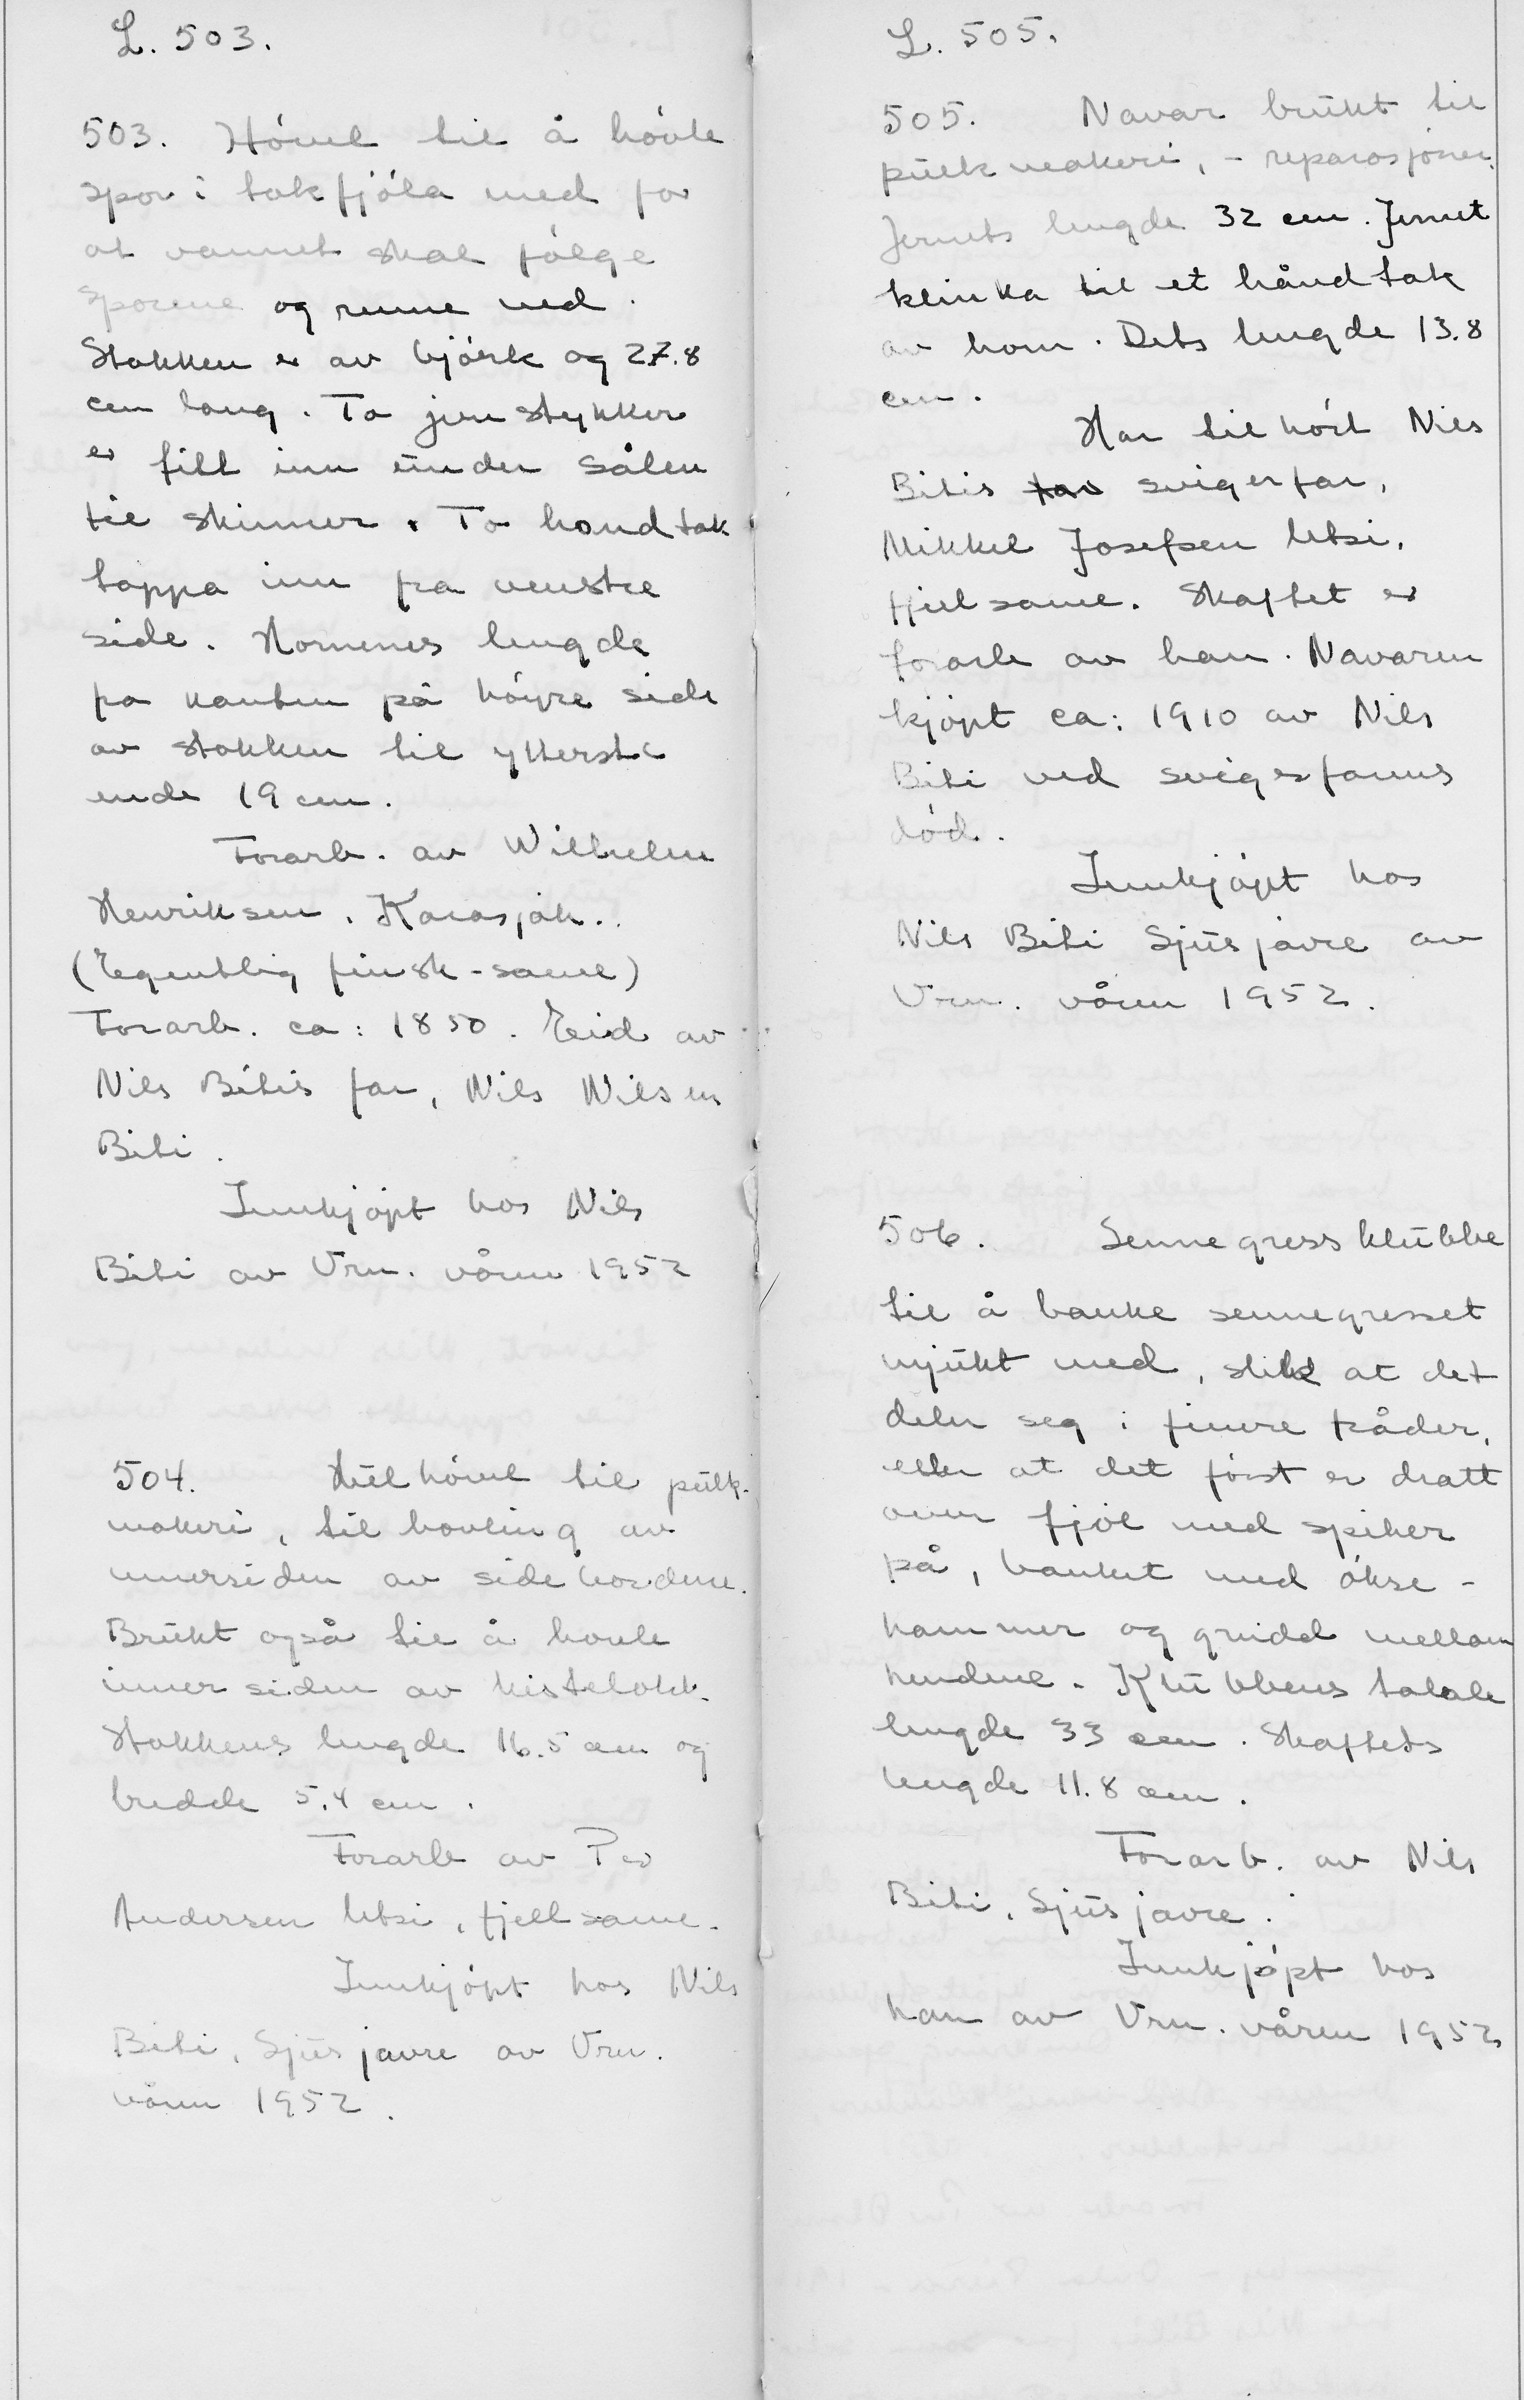 L. 503.
503. Hóvel til å hóvle
spor i takfjóla med for
at vannet skal fólge
sporene og renne ned.
Stokken er av bjórk og 27.8
cm lang. To jern stykker
er fillt inn under sålen
til skinner. To hond tak
tappa inn fra venstre
side. Hornenes lengde
fra kanten på hóyre side
av stokken til ytterste
ende 19 cm.
Forarb. av Wilhelm
Henriksen, Karasjok.
(Egentlig finsk-same)
Forarb. ca: 1850. Eid av
Nils Bitis far, Nils Nilsen
Biti.
Innkjópt hos Nils
Biti av Vrn. våren 1952
504. Hulhóvel til pulk-
makeri, til hovling av
innersiden av sidebordene.
Brukt også til å hovle
innersiden av kistelokk.
Stokkens lengde 16.5 cm og
bredde 5.4 cm.
Forarb av Per
Andersen Utsi, fjellsame.
Innkjópt hos Nils
Biti, Sjusjavre av Vrn.
våren 1952.
L. 505.
505. Navar brukt til
pulkmakeri, - reparasjoner.
Jernets lengde 32 cm. Jernet
klinka til et håndtak
av horn. Dets lengde 13.8
cm.
Har tilhórt Nils
Bitis far svigerfar,
Mikkel Josefsen Utsi,
fjellsame. Skaftet er
forarb av han. Navaren
kjópt ca: 1910 av Nils
Biti ved svigerfarens
dód.
Innkjópt hos
Nils Biti Sjusjavre av
Vrn. våren 1952.
506. Sennegressklubbe
til å banke sennegresset
mjukt med, slik at det
deler seg i finere tråder,
eller at det fórst er dratt
over fjól med spiker
på, banket med ókse-
hammer og gnidd mellom
hendene. Klubbens totale
lengde 33 cm. Skaftets
lengde 11.8 cm.
Forarb. av Nils
Biti, Sjusjavre.
Innkjópt hos
han av Vrn. våren 1952